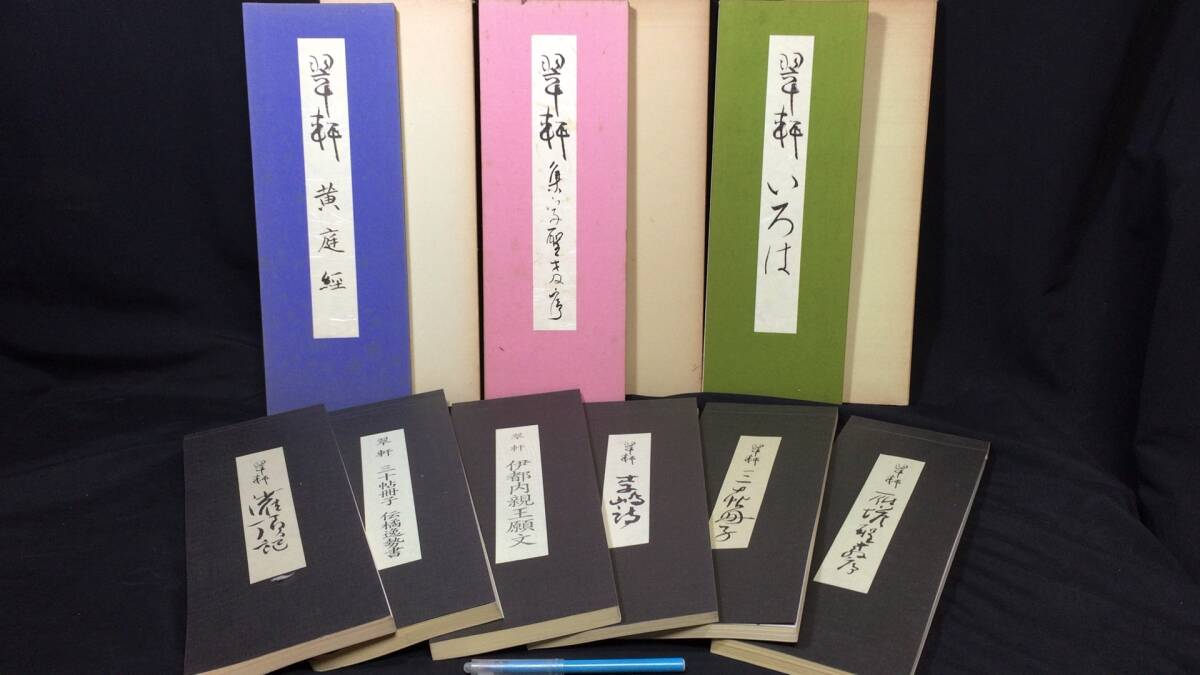 翠軒 黄庭經
翠軒 集字聖教序
翠軒 いろは
翠軒 灌頂記
翠軒 三十帖冊子 伝橘逸勢書
翠軒 伊都内親王願文
翠軒 李嶠詩
翠軒 三十帖冊子
翠軒 雁塔聖教序